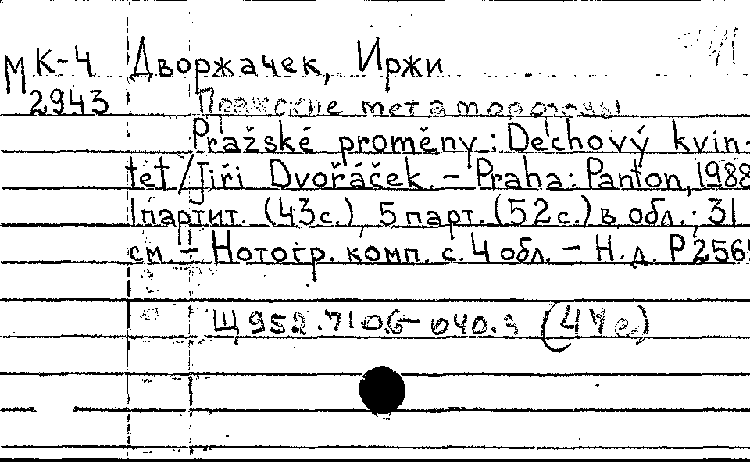 МК-4 Дворжачек, Иржи
2943 Пражские метаморфозы
Pražské proměny : Dechový kvin-
tet / Jiří Dvořáček. – Praha : Panton, 1988
1 партит. (43 с.), 5 парт. (52 с.) в обл. ; 31
см. – Нотогр. комп. с. 4 обл. – Н.д. P 2565
Щ 952.7106-040.3 (4Че)